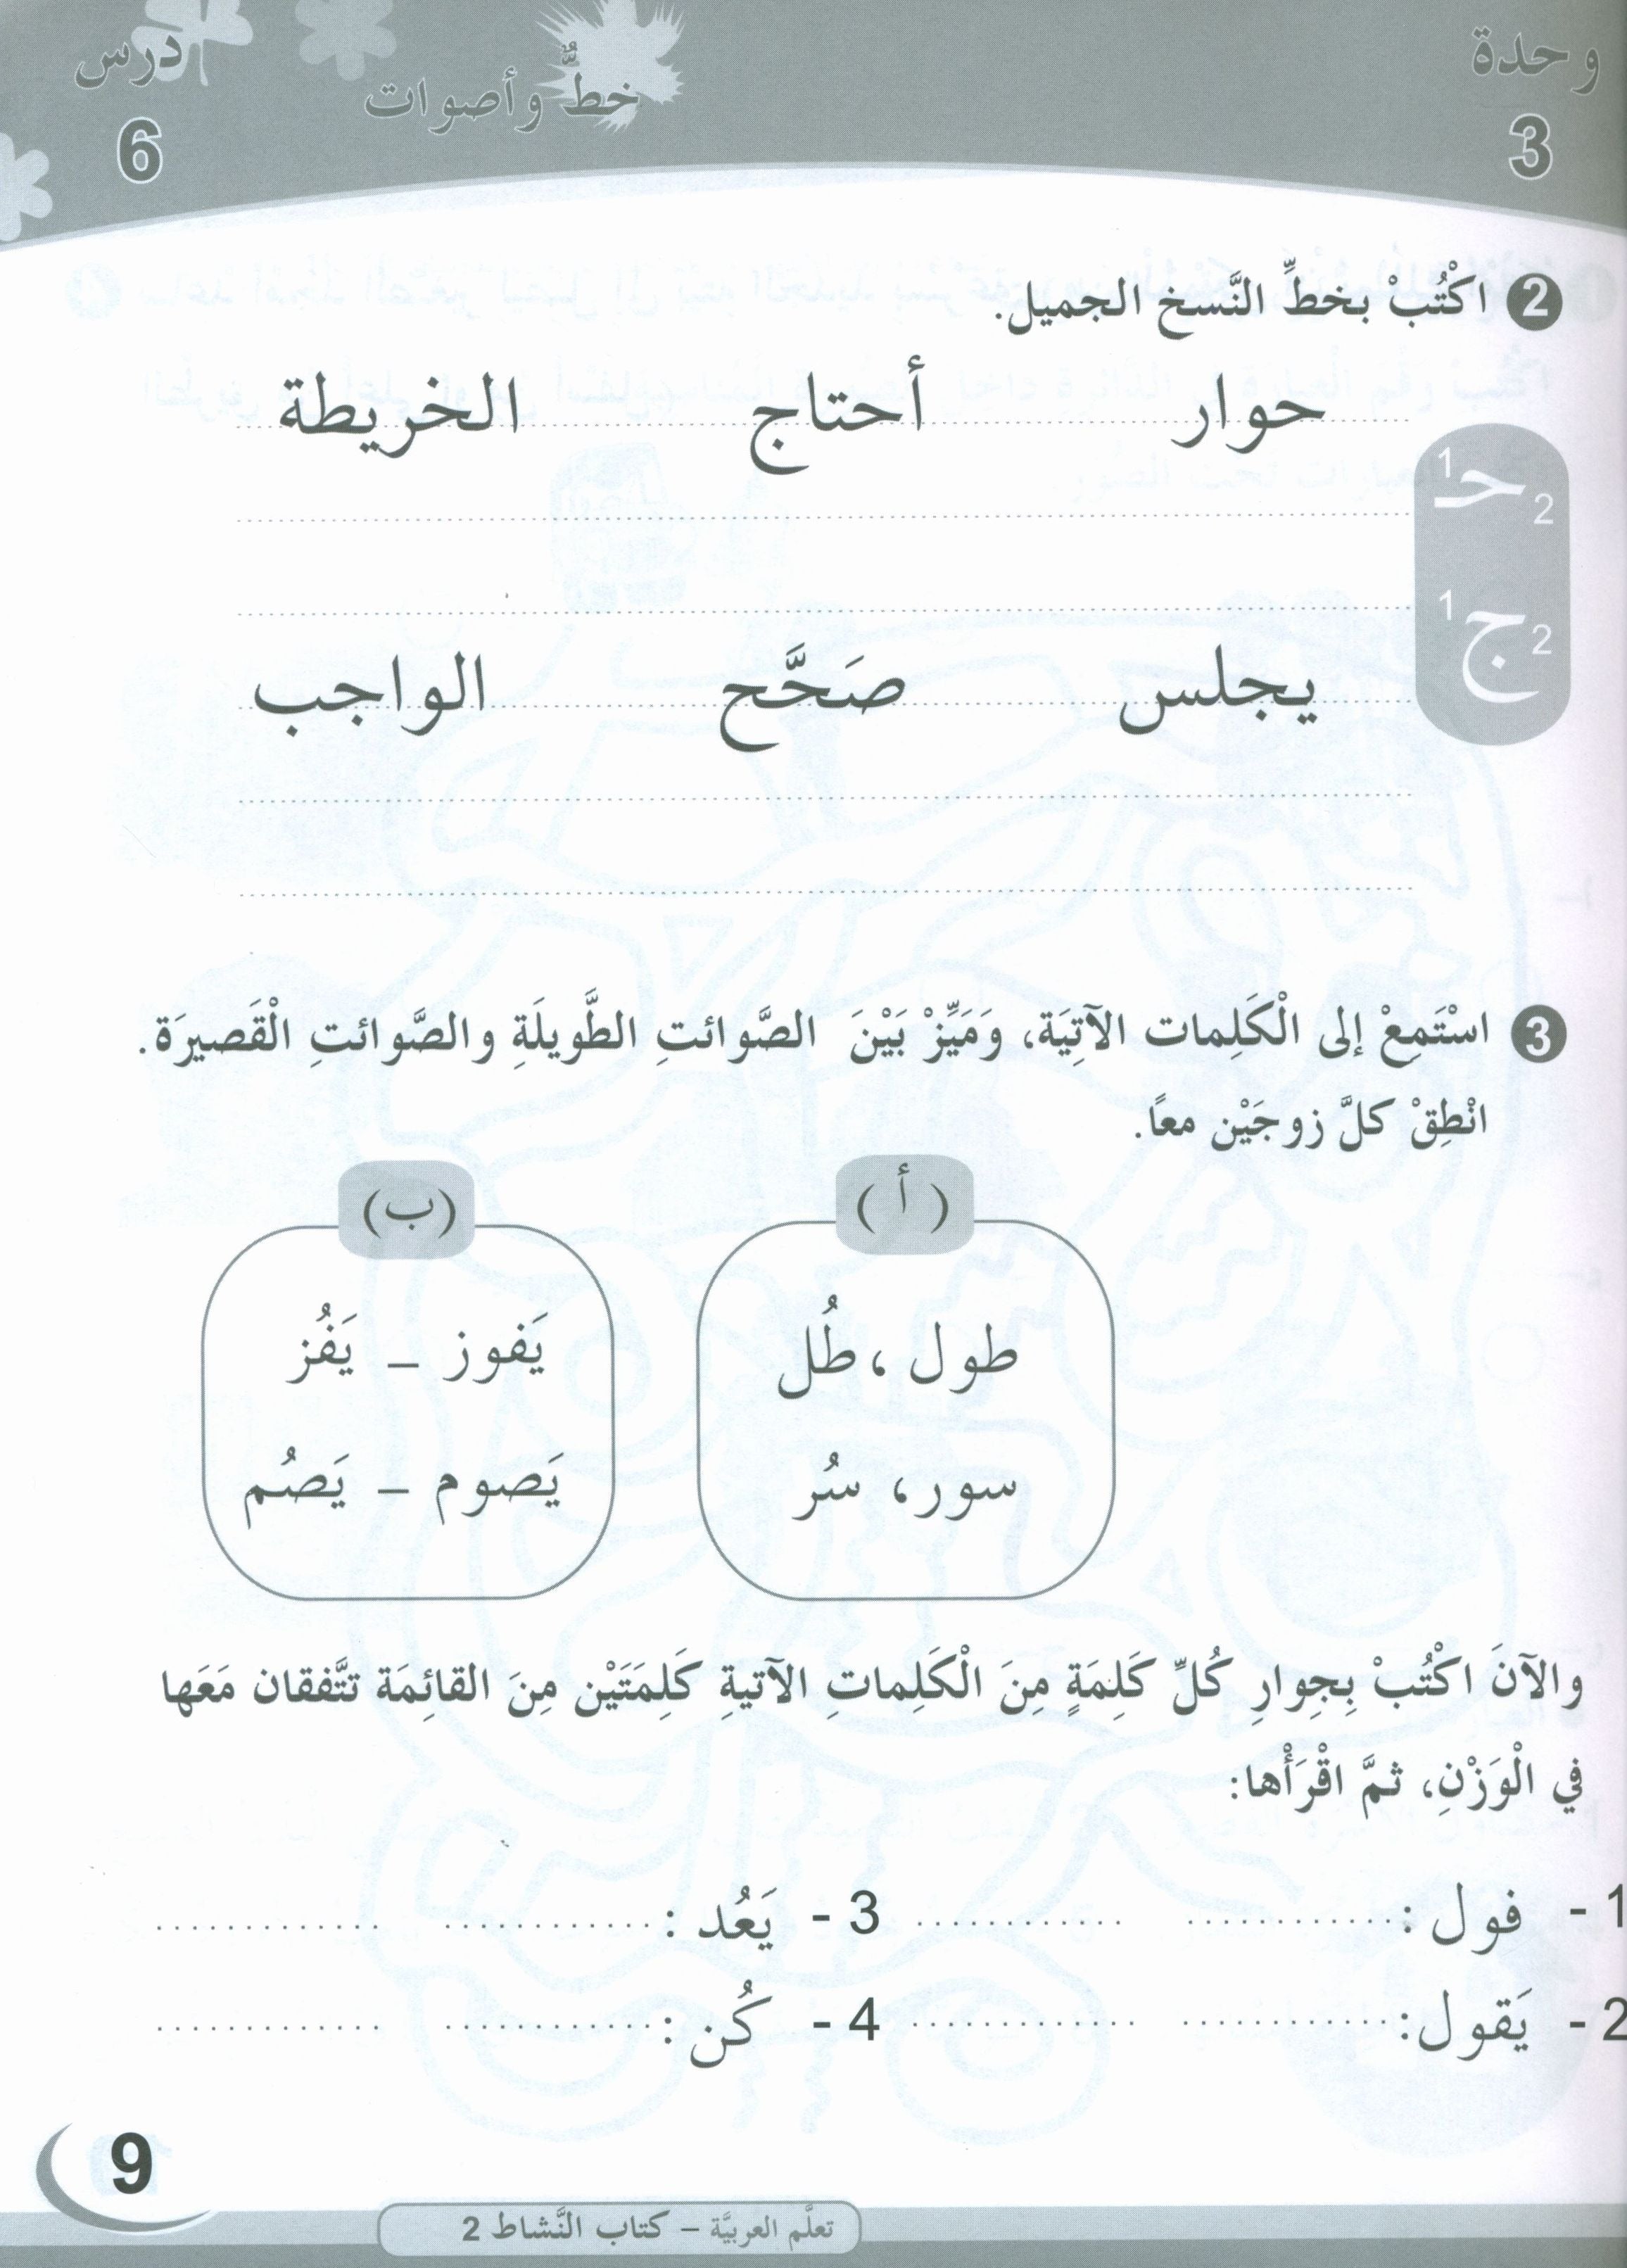 وحدة
3
خطٌّ وأصوات
درس
6
2 اكْتُبْ بخطِّ النَّسخ الجميل.
حوار أحتاج الخريطة
1 حـ 2
1 ج 2
يجلس صَحَّح الواجب
3 اسْتَمِعْ إلى الْكَلِمات الآتِيَة، وَمَيِّزْ بَيْنَ الصَّوائتِ الطَّويلَةِ والصَّوائتِ الْقَصيرَة.
انْطِقْ كلَّ زوجَيْن معاً.
( أ )
طول ، طُل
سور، سُر
(ب)
يَفوز – يَفُز
يَصوم – يَصُم
والآنَ اكْتُبْ بِجِوارِ كُلِّ كَلِمَةٍ مِنَ الْكَلِماتِ الآتيةِ كَلِمَتَيْن مِنَ القائِمَة تتَّفقان مَعَها
في الْوَزْنِ، ثمَّ اقْرَأْها:
1 - فول : ............ ............ 3 - يَعُد : ............ ............
2 - يَقول: ............ ............ 4 - كُن : ............ ............
9
تعلَّم العربيَّة – كتاب النَّشاط 2